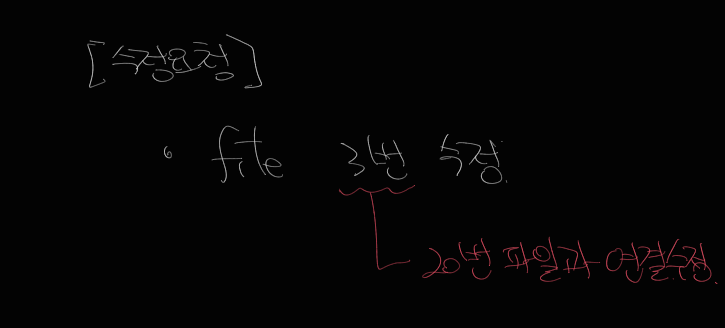 [수정요청]
• file 3번 수정.
20번 파일과 연결수정.